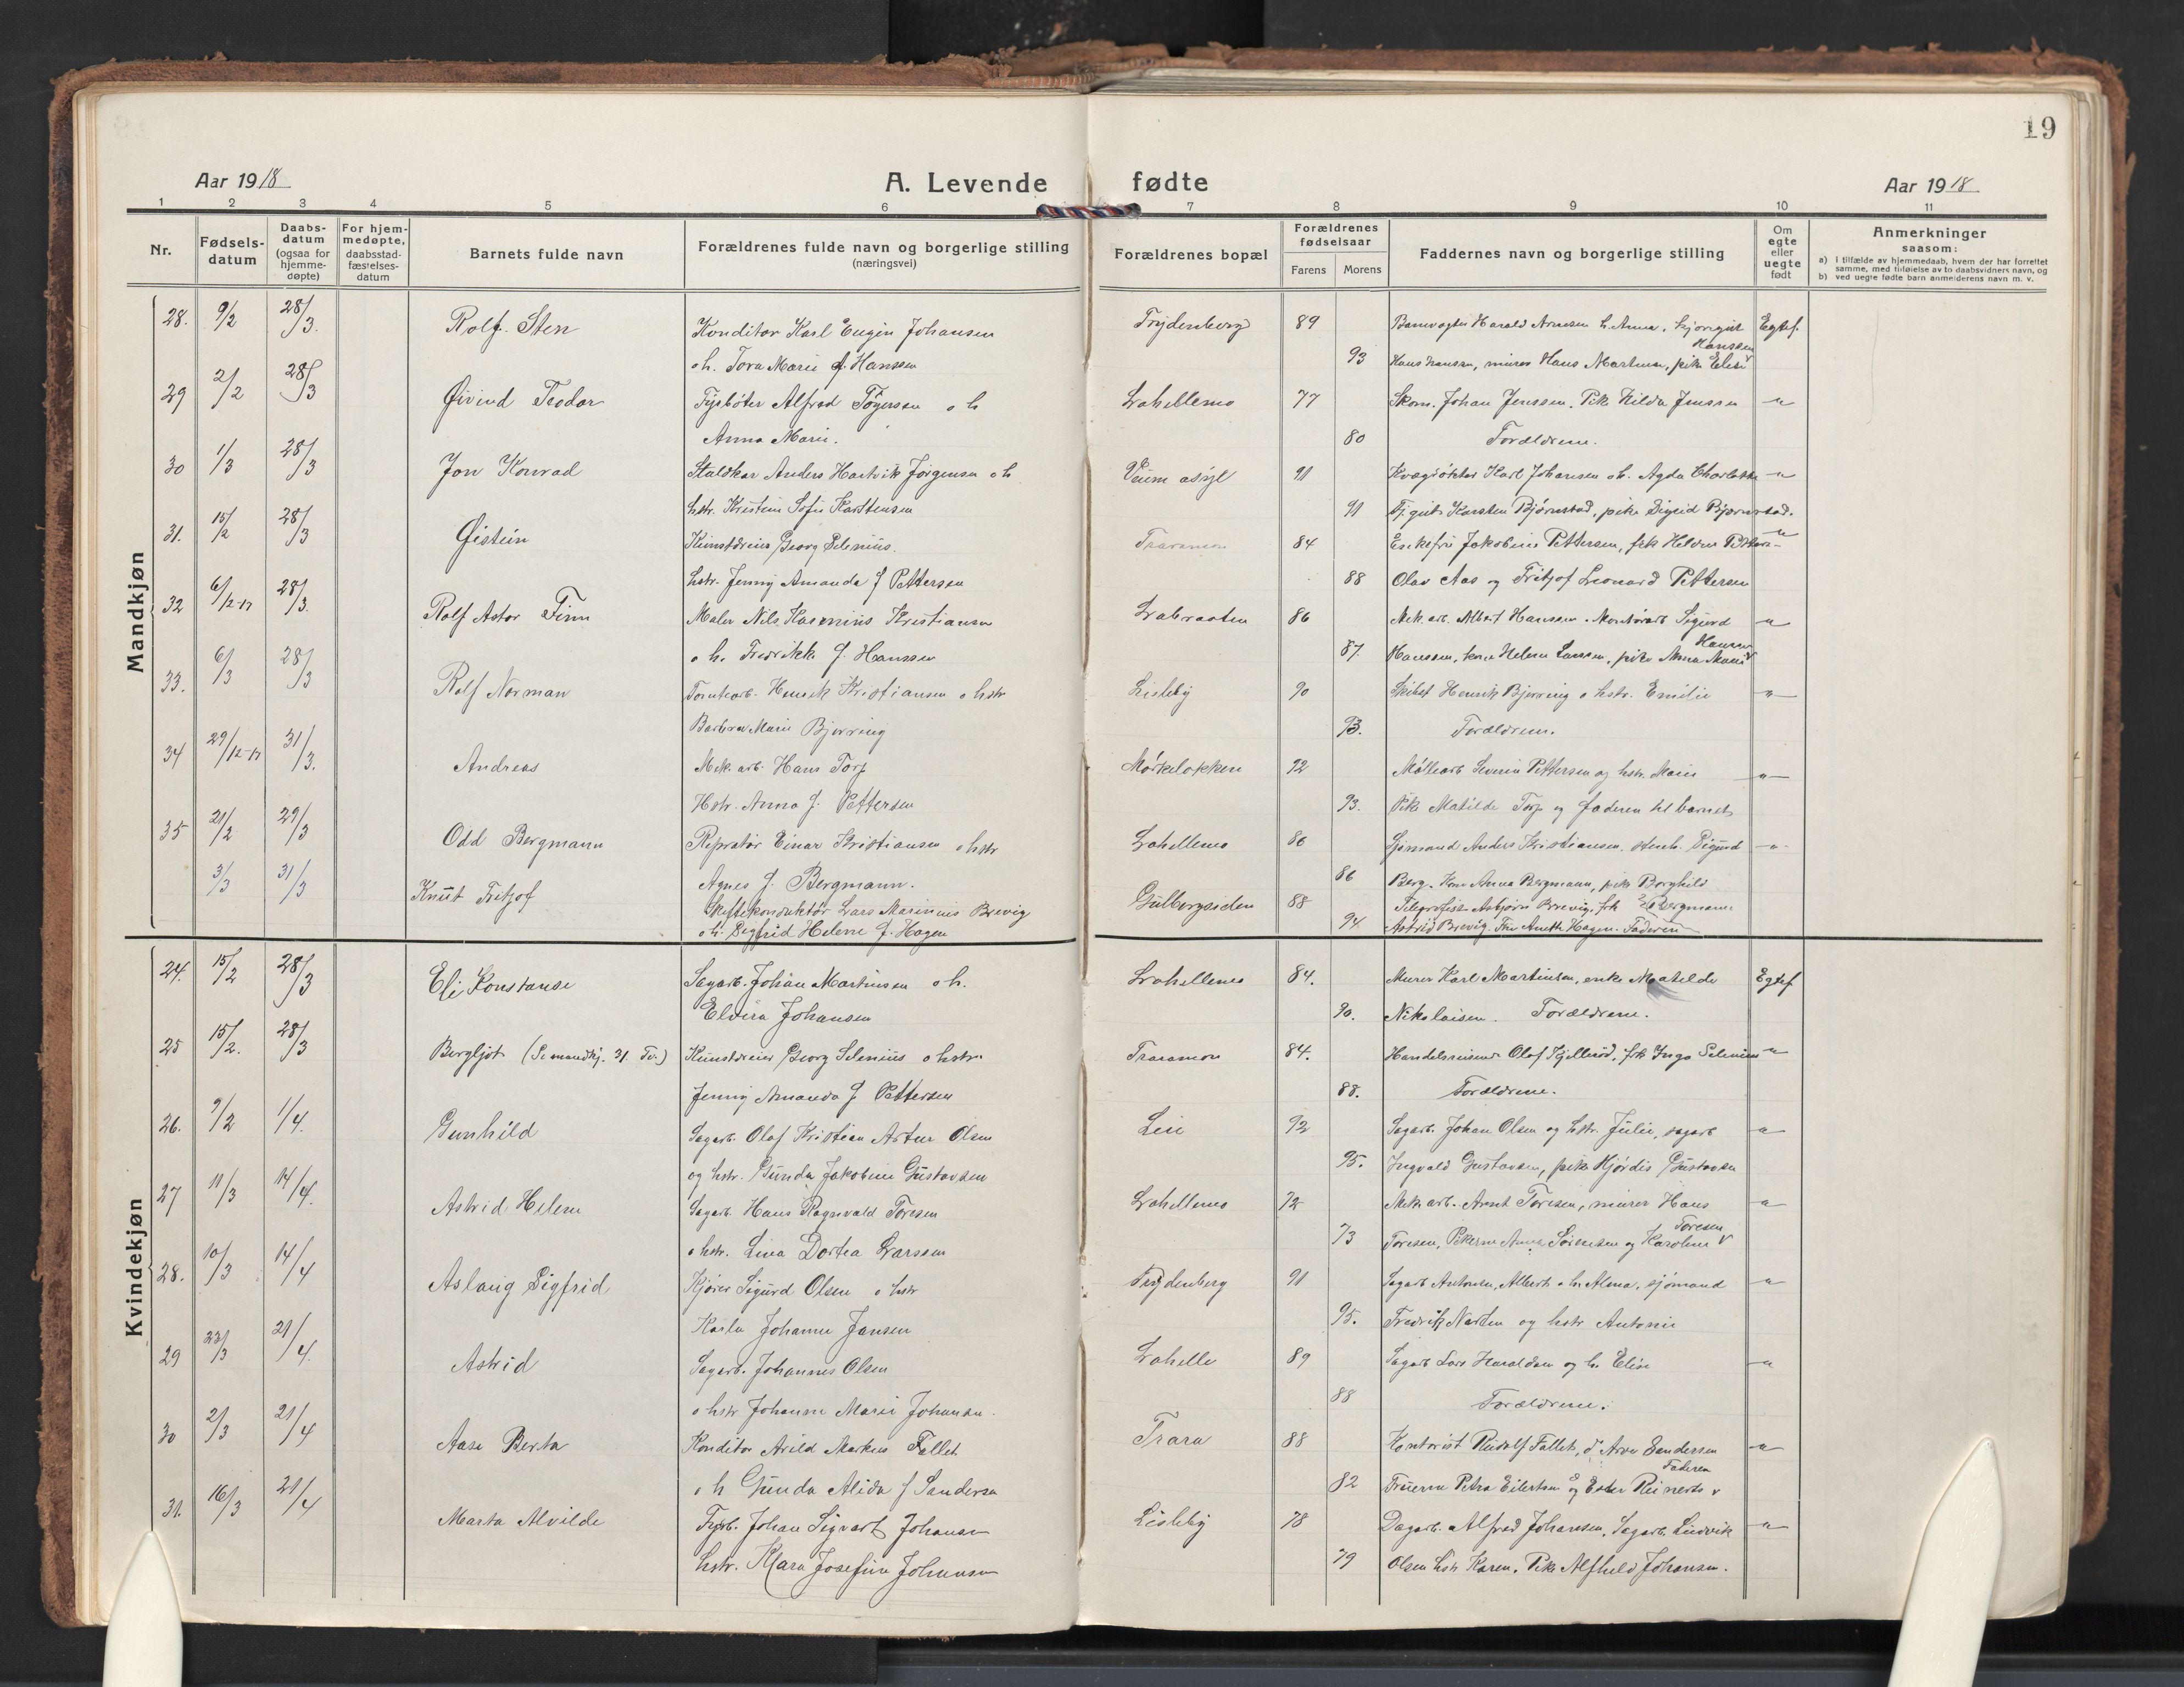 19
Aar 1918 A. Levende fødte Aar 1918
1 2 3 4 5 6 7 8 9 10 11
Nr. Fødsels-datum Daabs-datum (ogsaa for hjemme-døpte) For hjem-medøpte, daabsstad-fæstelses-datum Barnets fulde navn Forældrenes fulde navn og borgerlige stilling (næringsvei) Forældrenes bopæl Forældrenes fødselsaar Farens Morens Faddernes navn og borgerlige stilling Om egte eller uegte født Anmerkninger saasom:
a) i tilfælde av hjemmedaab, hvem der har forrettet samme, med tilføielse av to daabsvidners navn, og
b) ved uegte fødte barn anmelderens navn m. v.
Mandkjøn
28. 9/2 28/3. Rolf Sten Konditor Karl Eugen Johansen Trydenberg 89 Banevogter Harald Arnesen h. Anna, Egtef.
Hanssen
o h. Tora Marie f. Hanssen 93 Hans Hanssen, murer Hans Martinsen, pike Elise
29 2/2 28/3 Øivind Teodor Fyrbøter Alfred Tøgersen o h Lahellemo 77 Skom. Johan Jenssen. Pike Hilda Jenssen -"-
Anna Marie. 80 Forældrene.
30 1/3 28/3 Jon Konrad Staldkar Anders Hartvik Jørgensen o h Veum asyl 91 Karl Johansen o h. Agda Charlotte -"-
hstr. Kristine Sofie Karstensen 91 Karsten Bjørnstad, pike Sigrid Bjørnstad.
31. 15/2 28/3 Øistein Kunstdreier Georg Selenius. Traramoen 84 Enkefru Jakobine Pettersen, frk Pettersen -"-
hstr. Jenny Amanda f Pettersen 88 Olav Aas og Fritjof Leonard Pettersen
32 6/12-17 28/3. Rolf Astor Finn Maler Nils Rasmius Kristiansen Labraaten 86 Mek. arb. Albert Hanssen. Sigurd -"-
Hanssen
o h. Fredrikke f. Hanssen 87. Hanssen, kone Helene Larssen, pike Anna
33. 6/3 28/3 Rolf Norman Henrik Kristiansen o hstr Lisleby 90 Henrik Bjerring o hstr. Emilie -"-
Barbra Marie Bjerring 93. Forældrene.
34 29/12-17 31/3. Andreas Mek. arb. Hans Torp Mørkeløkken 92 Møllearb Severin Pettersen og hstr. Marie -"-
Hstr. Anna f. Pettersen 93. Pike Matilde Torp og faderen til barnet
35 21/2 29/3 Odd Bergmann Repratør Einar Kristiansen o hstr Lahellemo 86 Sjømand Anders Kristiansen, Sigurd -"-
Agnes f. Bergmann. 86 Berg. Kone Anna Bergmann, pike Borghild Bergmann
3/3 31/3 Knut Fritjof Skiftekonduktør Lars Marinius Brevig Gulbergsiden 88 Telegrafist Asbjørn Brevig, frk
o h. Sigfrid Helene f. Hagen 94 Astrid Brevig. Fru Anette Hagen. Faderen
Kvindekjøn
24. 15/2 28/3 Eli Konstanse Sagarb. Johan Martinsen o h. Lahellemo 84. Murer Karl Martinsen, enke Matilde Egtef
Elvira Johansen 90. Nikolaisen. Forældrene.
25 15/2. 28/3 Bergljot (Se mandkj. 31. Tv.) Kunstdreier Georg Selenius o hstr Traramoen 84. Handelsreisende Olaf Kjellerød, frk Inga Selenius -"-
Jenny Amanda f Pettersen 88. Forældrene.
26. 9/2 1/4. Gunhild Sagarb. Olaf Kristian Artur Olsen Lie 92 Sagarb. Johan Olsen og hstr. Julie, sagarb -"-
og hstr. Gunda Jakobine Gustavsen 95. Ingvald Gustavsen, pike Hjørdis Gustavsen
27 11/3 14/4. Astrid Helene Sagarb. Hans Ragnvald Toresen Lahellemo 72 Mek. arb. Arnt Toresen, murer Hans -"-
Toresen
o hstr. Lina Dortea Larssen 73 Toresen, Pikerne Anna Sørensen og Karoline
28. 10/3 14/4 Aslaug Sigfrid Kjører Sigurd Olsen o hstr Trydenberg 91 Sagarb Antonsen, Albert o h. Alma, sjømand -"-
Karla Johanne Jansen 95. Fredrik Narten og hstr Antonie
29 23/3 21/4. Astrid Sagarb. Johannes Olsen Lahelle 89 Sagarb Lars Haraldsen og h. Elise -"-
o hstr Johanne Marie Johansen. 88 Forældrene.
30 2/3 21/4 Aase Berta Konditor Arild Markus Fallet Trara 88 Kontorist Rudolf Fallet, d Arve Sandersen -"-
Faderen
o h Gunda Alida f Sandersen 82 Fruerne Petra Eilertsen og Ester Reinerts
31. 16/3 21/4 Marta Alvilde Fyrb. Johan Sigvart Johansen Lisleby 78 Dagarb. Alfred Johansen, Sagarb. Ludvik -"-
hstr. Kara Josefine Johansen 79 Olsen hstr Karen. Pike Alfhild Johansen.